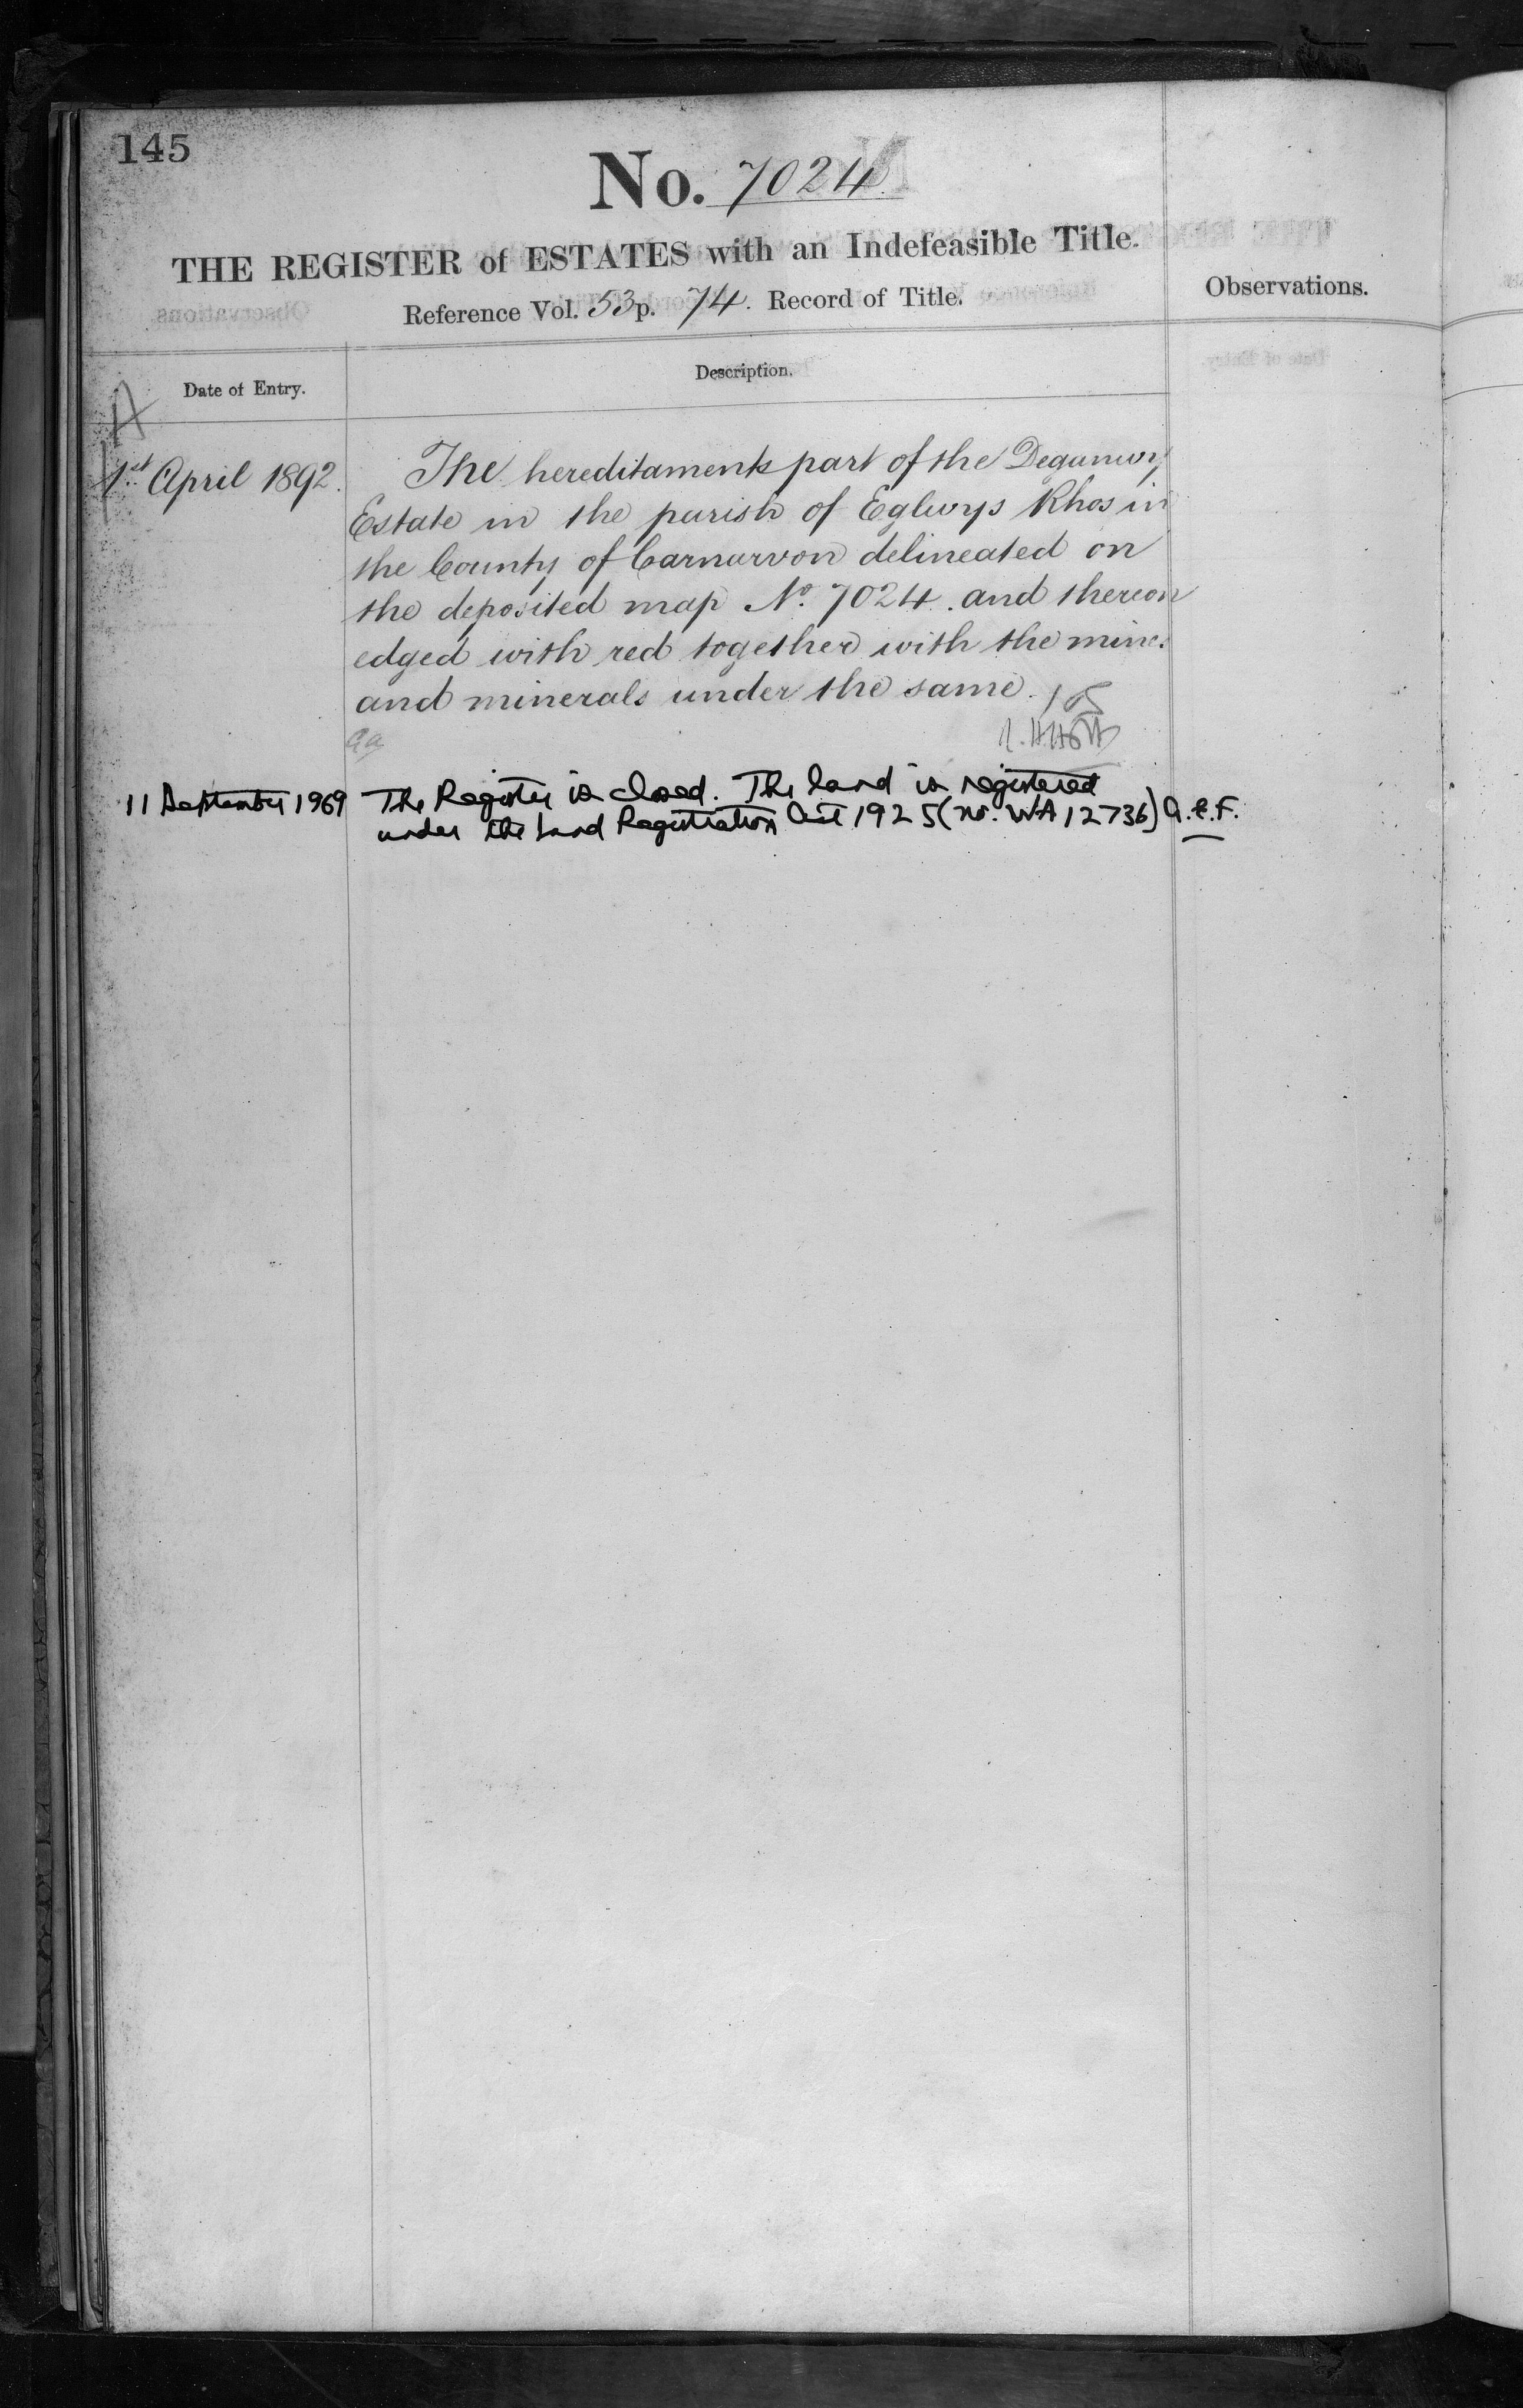 145
No. 7024
THE REGISTER of ESTATES with an Indefeasible Title.
Reference Vol. 53 p. 74. Record of Title.
Observations.
Date of Entry.
Description.
1st April 1892.
The hereditaments part of the Deganwy
Estate in the parish of Eglwys Rhos in
the County of Carnarvon delineated on
the deposited map No. 7024. and thereon
edged with red together with the mines
and minerals under the same.
11 September 1969 The Register is closed. The land is registered
under the Land Registration Act 1925 (no. WA 12736) A.E.F.